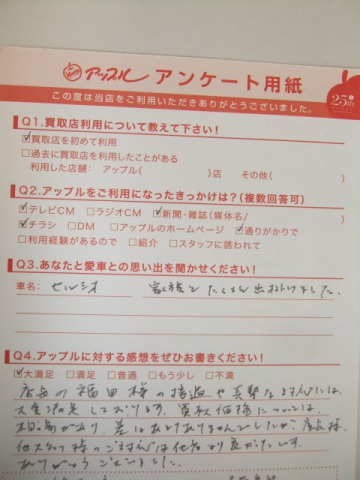 アップル アンケート用紙
25th
この度は当店をご利用いただきありがとうございました。
Q1.買取店利用について教えて下さい!
☑買取店を初めて利用
□過去に買取店を利用したことがある
利用した店舗:アップル( )店 その他( )
Q2.アップルをご利用になったきっかけは?(複数回答可)
☑テレビCM □ラジオCM ☑新聞・雑誌(媒体名/ )
☑チラシ □DM □アップルのホームページ ☑通りがかりで
□利用経験があるので □紹介 □スタッフに誘われて
Q3.あなたと愛車との思い出を聞かせてください!
車名: セルシオ 家族でたくさん出掛けました。
Q4.アップルに対する感想をぜひお書きください!
☑大満足 □満足 □普通 □もう少し □不満
店長の福田様の接遇や真摯な対応には、
大変満足しております。買取価格については
相場があり、差はあまりありませんでしたが、店長様、
他スタッフ様のご対応は他店より良かったです。
ありがとうございました。